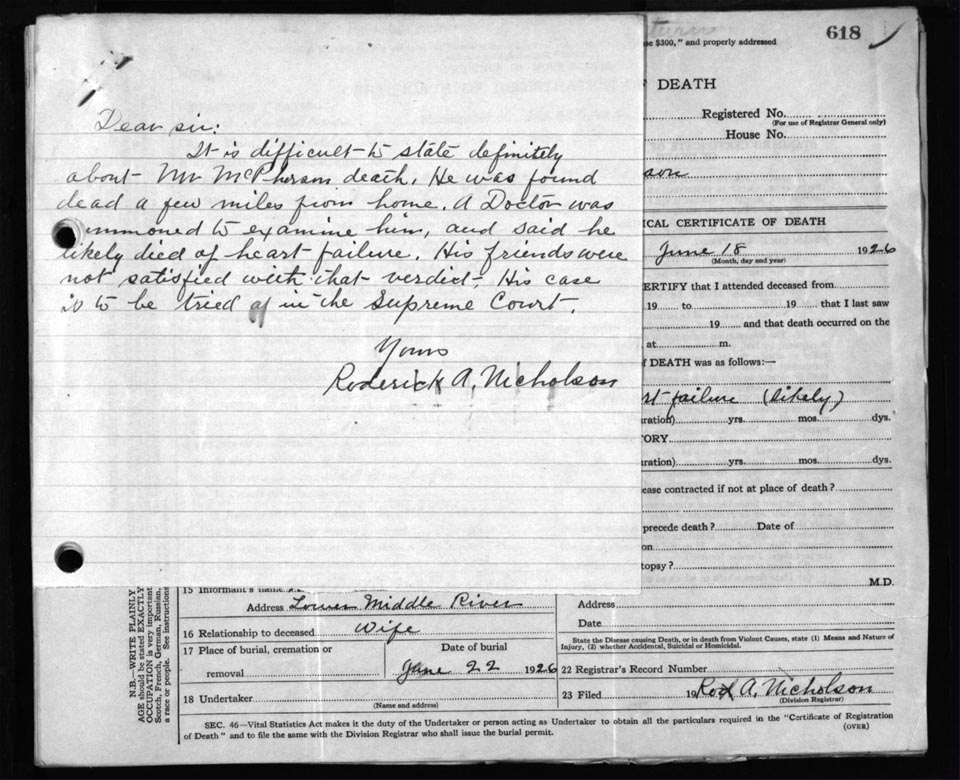 618
e $300," and properly addressed
Dear sir:
It is difficult to state definitely
about Mr McPherson death. He was found
dead a few miles from home. A Doctor was
summoned to examine him, and said he
likely died of heart failure. His friends were
not satisfied with that verdict. His case
is to be tried in the Supreme Court.
Yours
Roderick A. Nicholson
F DEATH
Registered No.
(For use of Registrar General only)
House No.
ICAL CERTIFICATE OF DEATH
June 18 1926
(Month, day and year)
ERTIFY that I attended deceased from
19 to 19 that I last saw
19 and that death occurred on the
at m.
DEATH was as follows:—
rt failure (likely)
uration) yrs. mos. dys.
TORY
uration) yrs. mos. dys.
ease contracted if not at place of death?
precede death? Date of
on
topsy?
M.D.
Address
Date
State the Disease causing Death, or in death from Violent Causes, state (1) Means and Nature of
Injury, (2) whether Accidental, Suicidal or Homicidal.
22 Registrar's Record Number
23 Filed 19 Rod A. Nicholson
(Division Registrar)
15 Informant's name
Address Lower Middle River
16 Relationship to deceased Wife
17 Place of burial, cremation or
removal
Date of burial
June 22 1926
18 Undertaker
(Name and address)
N.B.—WRITE PLAINLY
AGE should be stated EXACTLY
OCCUPATION is very important
Scotch, French, German, Russian,
a race or people. See instructions
SEC. 46—Vital Statistics Act makes it the duty of the Undertaker or person acting as Undertaker to obtain all the particulars required in the "Certificate of Registration
of Death" and to file the same with the Division Registrar who shall issue the burial permit.
(OVER)